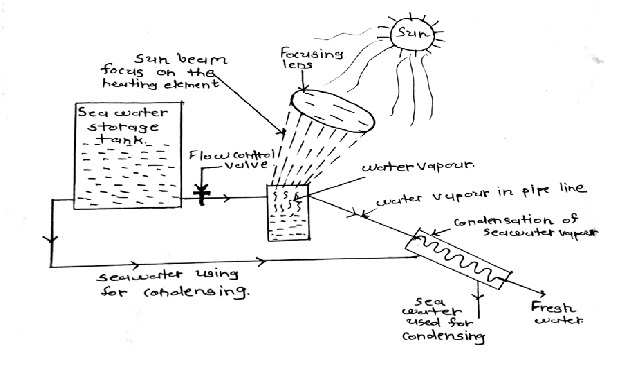 Sun
Focusing
lens
Sun beam
focus on the
heating element
Sea water
storage
tank.
Flow control
valve
water vapour.
water vapour in pipe line
Condensation of
seawater vapour
seawater using
for condensing.
Sea
water
used for
condensing
Fresh
water.